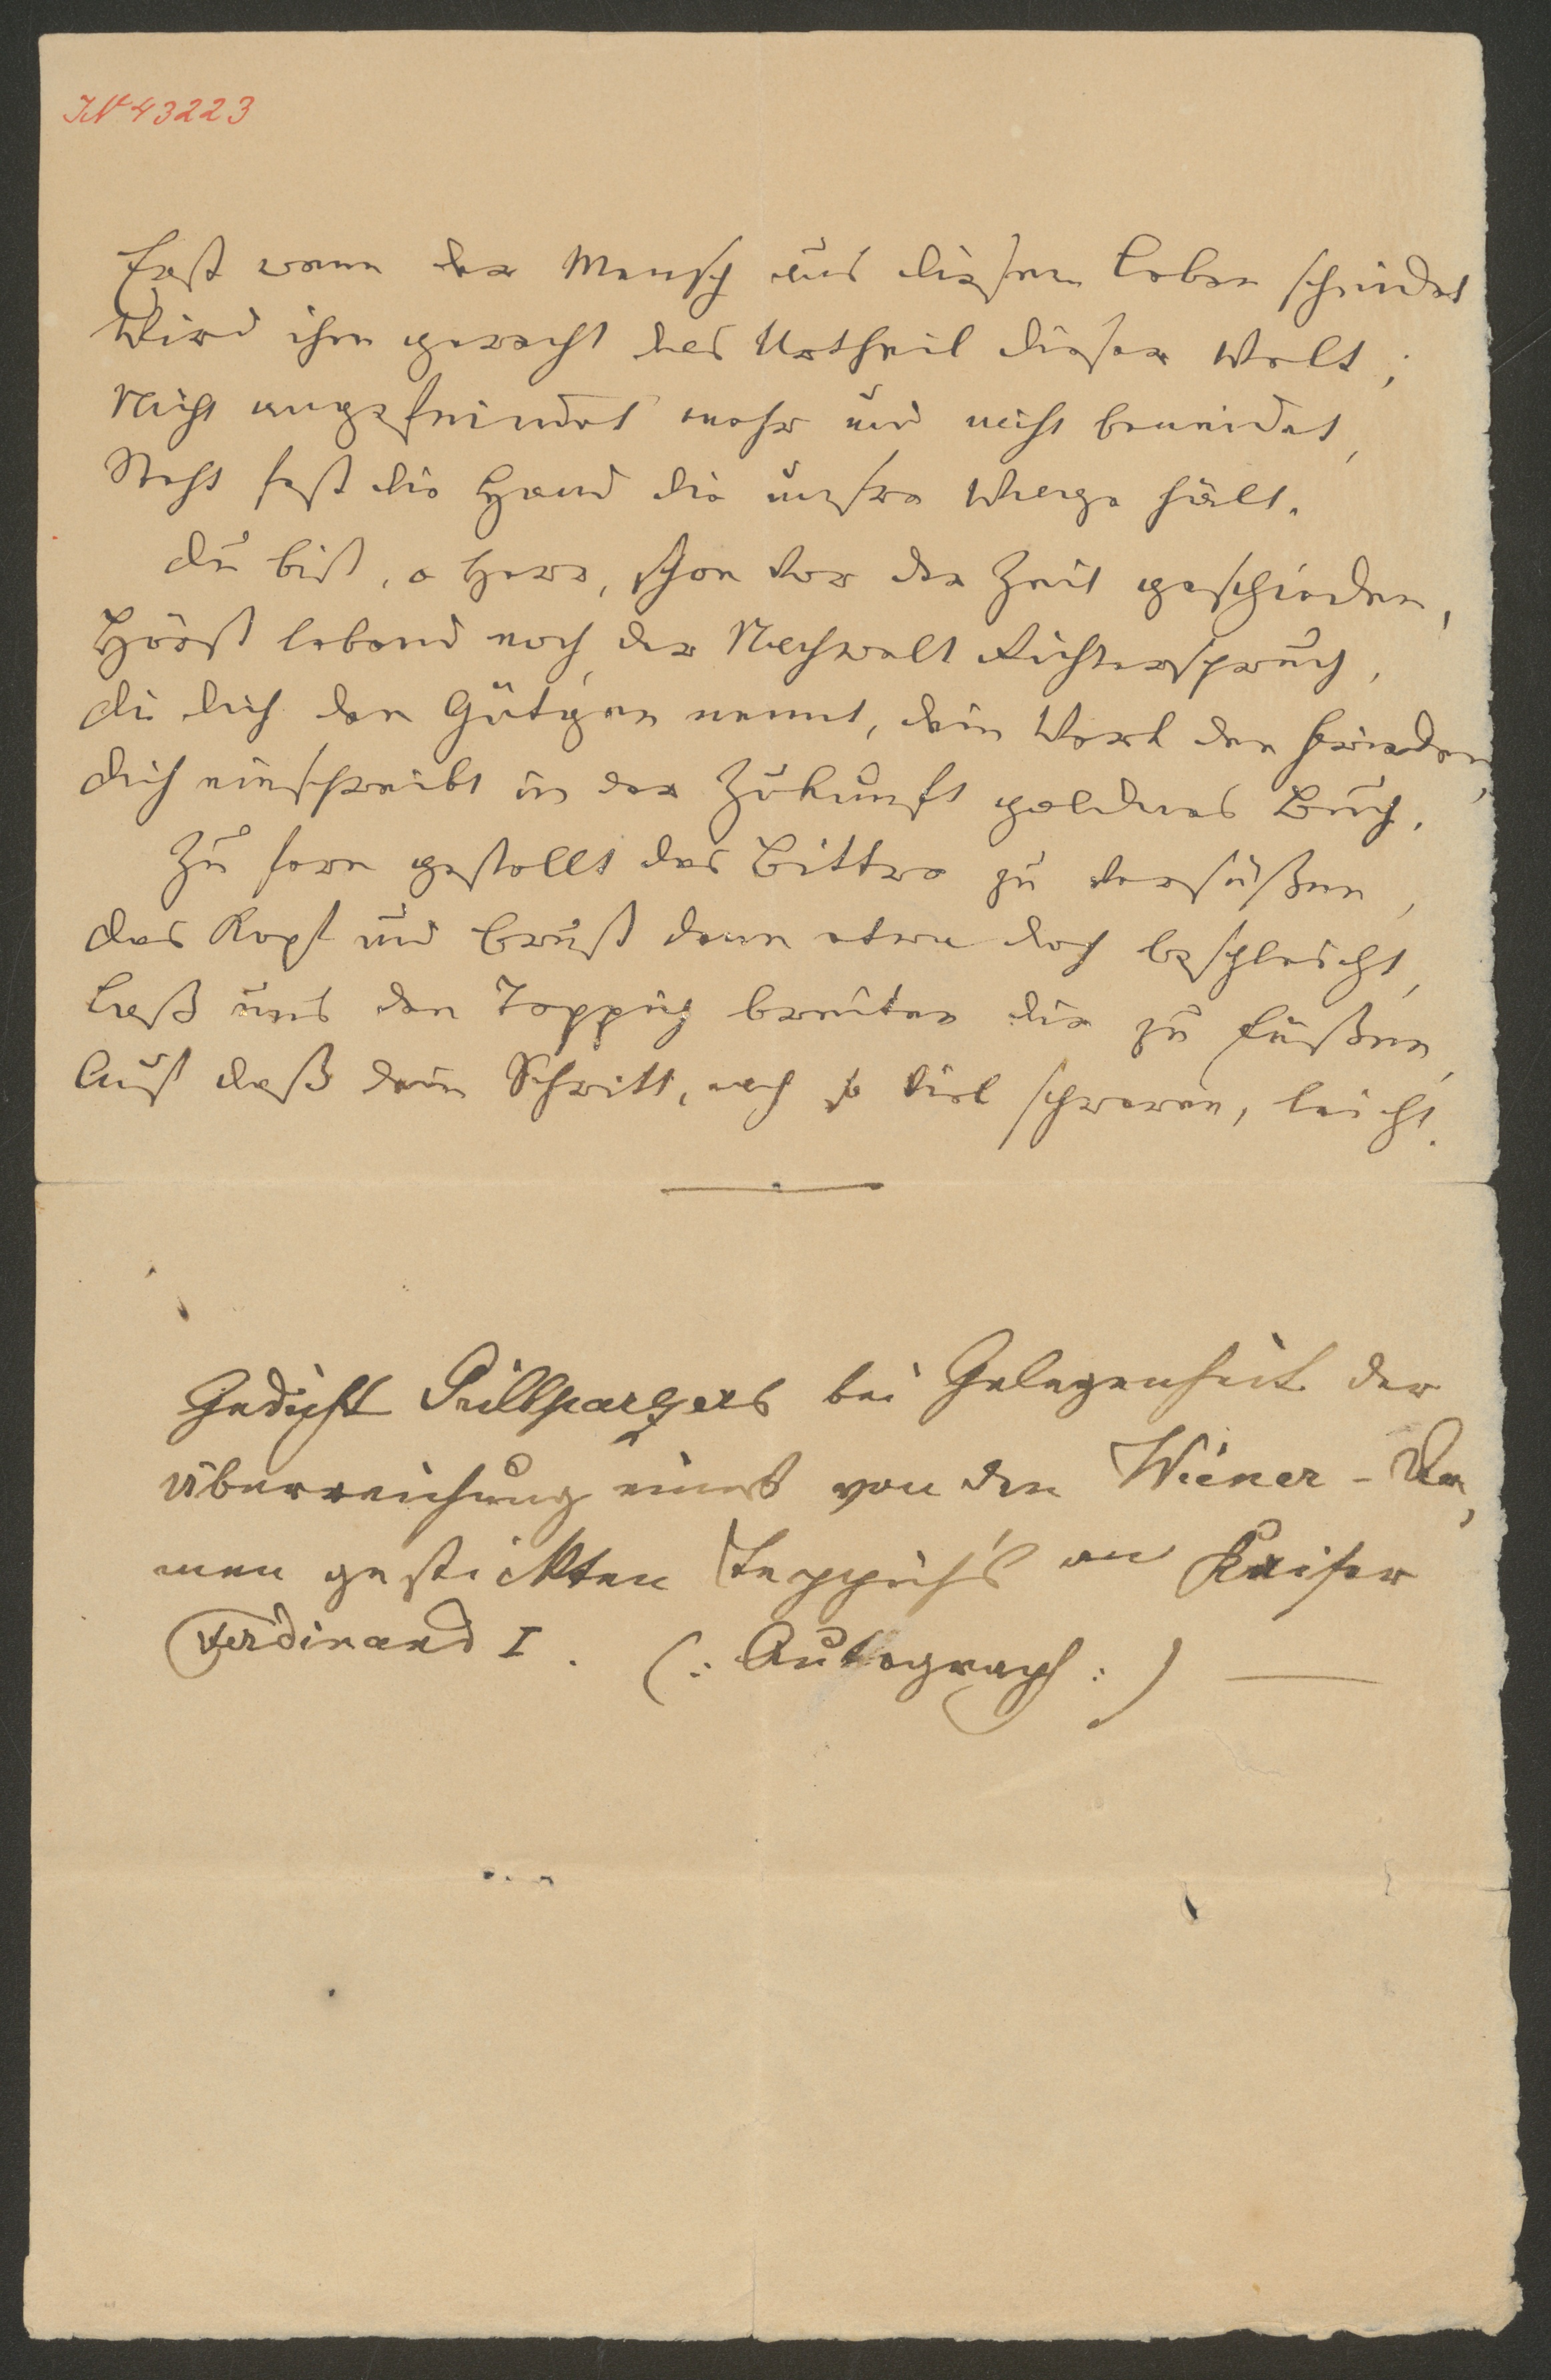 IN 43223
Erst wenn der Mensch aus diesem Leben scheidet
Wird ihm gerecht das Urtheil dieser Welt;
Nicht angefeindet mehr und nicht beneidet,
Steht fest die Hand die unsre Wage hält.
Du bist, o Herr, schon vor der Zeit geschieden,
Hörst lebend noch der Nachwelt Richterspruch,
Die dich den Gütgen nennt, dein Werk den Frieden,
Dich einschreibt in der Zukunft goldnes Buch.
Zu fern gestellt das Bittre zu versüßen,
Das Kopf und Brust dann etwa doch beschleicht,
Laß uns den Teppich breiten dir zu Füßen,
Auf daß dein Schritt, nach so viel schweren, leicht.
Gedicht Grillparzers bei Gelegenheit der
Überreichung eines von den Wiener-Da,
men gestickten Teppichs an Kaiser
Ferdinand I. (: Autograph :)